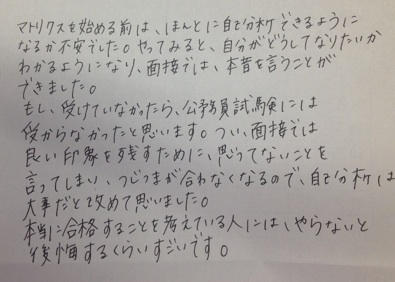 マトリクスを始める前は、ほんとに自己分析できるように
なるか不安でした。やってみると、自分がどうしてなりたいか
わかるようになり、面接では、本音を言うことが
できました。
もし、受けていなかったら、公務員試験には
受からなかったと思います。つい、面接では
良い印象を残すために、思ってないことを
言ってしまい、つじつまが合わなくなるので、自己分析は
大事だと改めて思いました。
本当に合格することを考えている人には、やらないと
後悔するくらいすごいです。